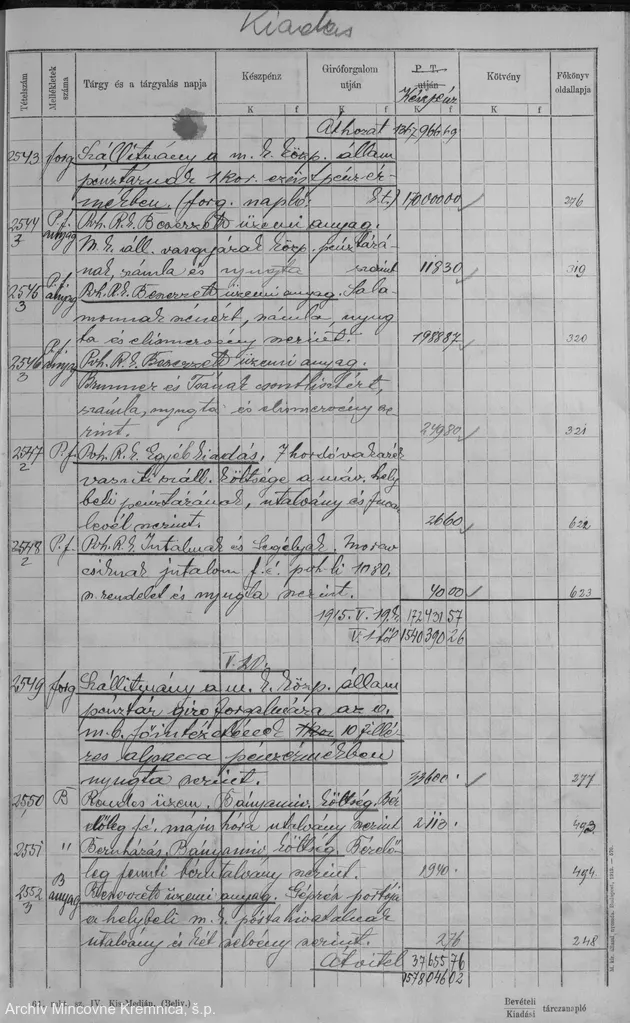 Kiadás
Tételszám
Mellékletek száma
Tárgy és a tárgyalás napja
Készpénz
Giróforgalom utján
P. T. utján
Készpénz
Kötvény
Főkönyv oldallapja
K f K f K f K f
Áthozat 1367966 69
2543 forg Szállitmány a m. k. közp. állam
pénztárnak 1 kor. ezüst pénzér-
mékben (forg. napló 170000 00 276
2544 3 P.f. anyag Poh. R.k. Beszerzett üzemi anyag.
M. k. áll. vasgyárak közp. pénztárá-
nak, számla és nyugta szerint 118 30 319
3 P.f. anyag Poh. R.k. Beszerzett üzemi anyag.
nyug
ta és elismervény szerint. 1988 87 320
2546 3 P.f. anyag Poh. R.k. Beszerzett üzemi anyag.
Brummer és
számla, nyugta és elismervény sze-
rint. 239 80 321
2547 2 P.f. Poh. R.k. Egyéb kiadás. 7 hordó
vasuti száll. költsége a máv. hely
beli pénztárának, utalvány és fuvar
levél szerint. 26 60 622
2548 2 P.f. Poh. R.k. Jutalmak és Segélyek.
jutalom 1080.
sz. rendelet és nyugta szerint. 40 00 623
1915. V. 19. 172431 57
V. 1 től 1540390 26
V. 20.
2549 forg Szállitmány a m. k. közp. állam
pénztár giro forgalmára az o.
m. b. főintézetének 10 fillé-
res alpacca pénzérmékben
nyugta szerint. 33600 . 277
2550 B Rendes üzem. Bányamiv. költség. Bér
előleg május hóra utalvány szerint 2113 . 493
2551 " Beruházás. Bányamiv. költség. Bérelő
leg fennti bérutalvány szerint. 1940 . 494
2552 3 B anyag Beszerzett üzemi anyag.
a helybeli m. k. postahivatalnak
utalvány és két szelvény szerint. 2 76 248
Átvitel 37655 76
1578046 02
IV. Kis-Medján. (Beliv.)
Bevételi
Kiadási tárczanapló
Archív Mincovne Kremnica, š.p.